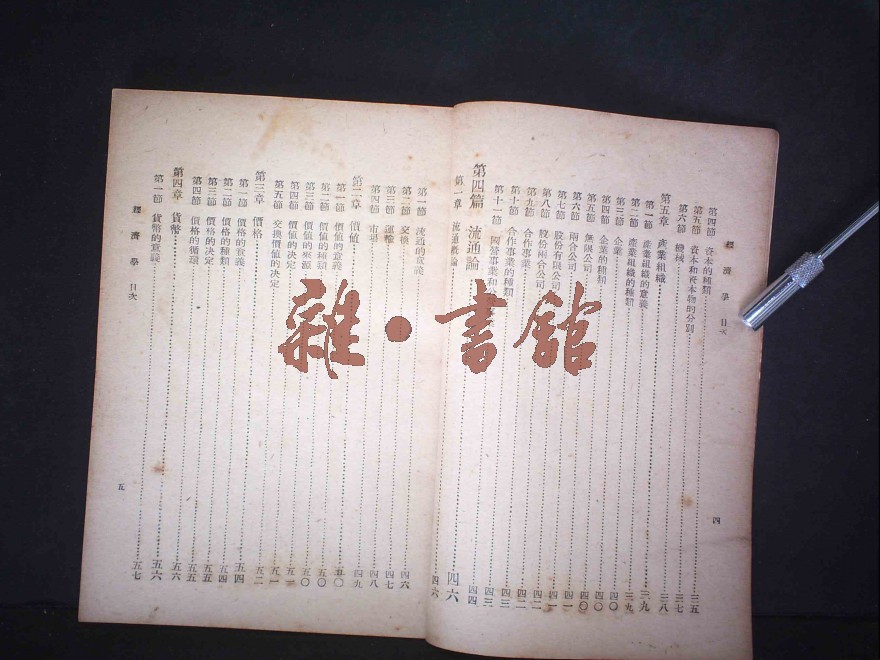 經濟學 目次
第四節 資本的種類 三五
第五節 資本和資本物的分別 三七
第六節 機械 三七
第五章 產業組織 三八
第一節 產業組織的意義 三九
第二節 產業組織的種類 三九
第三節 企業 四〇
第四節 企業的種類 四〇
第五節 無限公司 四〇
第六節 兩合公司 四一
第七節 股份有限公司 四一
第八節 股份兩合公司 四二
第九節 合作事業 四二
第十節 合作事業的種類 四三
第十一節 國營事業和 四三
第四篇 流通論 四六
第一章 流通概論 四六
四
第一節 流通的意義
第二節 交換 四六
第三節 運輸 四七
第四節 市場 四八
第二章 價值 四九
第一節 價值的意義 五〇
第二節 價值的種類 五〇
第三節 價值的來源 五〇
第四節 價值的決定 五一
第五節 交換價值的決定 五一
第三章 價格 五二
第一節 價格的意義 五四
第二節 價格的種類 五四
第三節 價格的決定 五五
第四節 價格的循環 五五
第四章 貨幣 五六
第一節 貨幣的意義 五六
五七
經濟學 目次
五
雜•書館